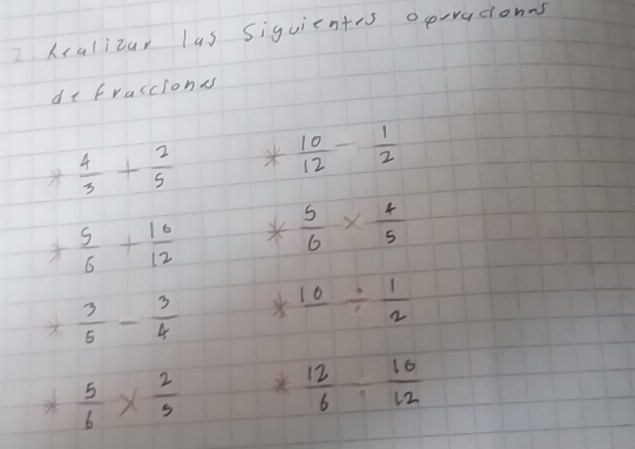 2 Realizar las siguientes operaciones
de fracciones
* 4/3 + 2/5    * 10/12 - 1/2
* 5/6 + 10/12    * 5/6 × 4/5
* 3/5 - 3/4    * 10/ ÷ 1/2
* 5/6 × 2/5    * 12/6 ÷ 10/12